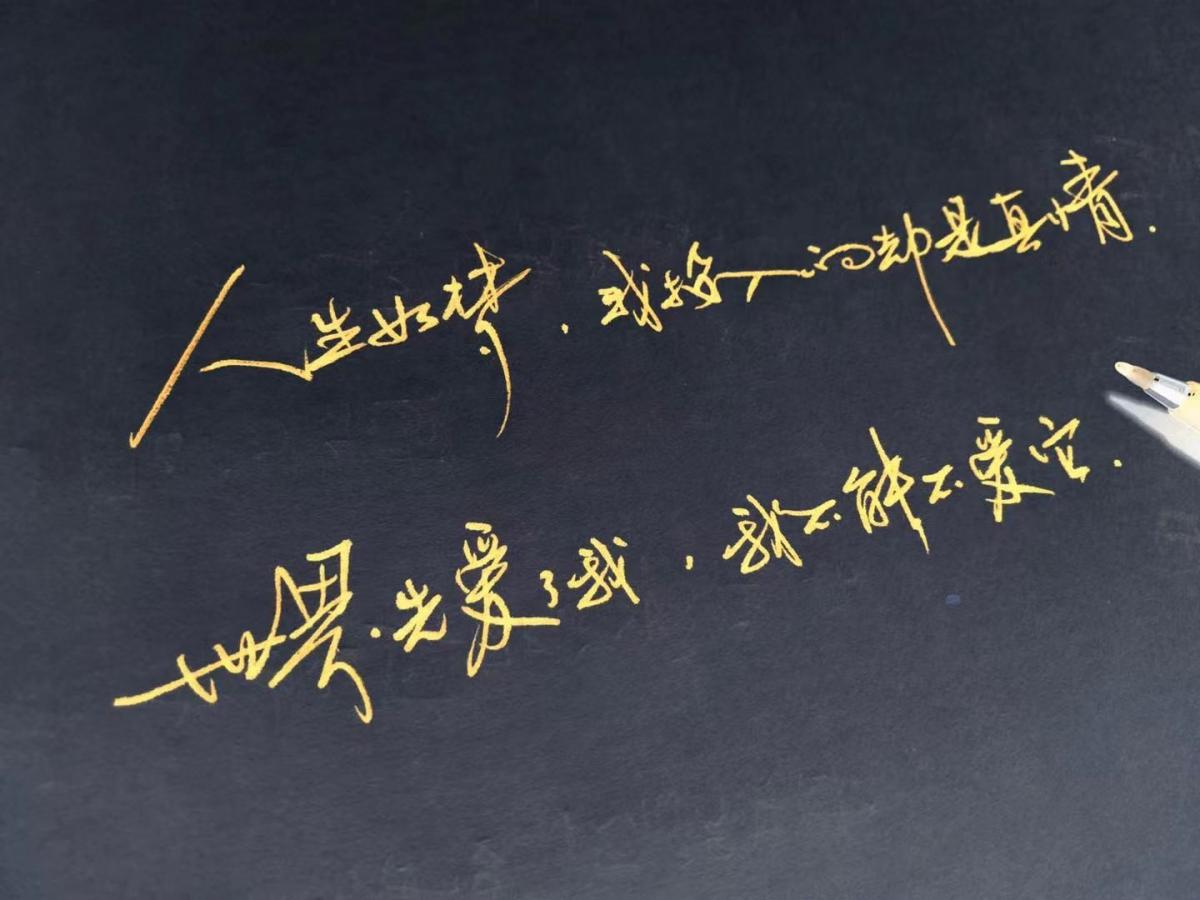 人生如梦，我投入的却是真情.
世界先爱了我，我不能不爱它.